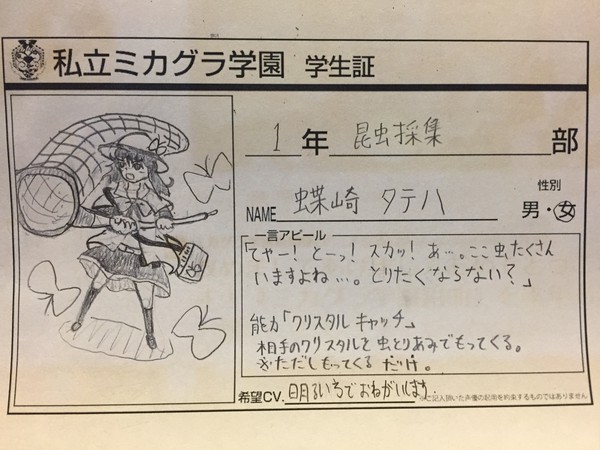 私立ミカグラ学園 学生証
1年 昆虫採集部
NAME 蝶崎 タテハ
性別
男・女
一言アピール
「てやー！とーっ！スカッ！あ…。ここ虫たくさん
いますよね…。とりたくならない？」
能力「クリスタルキャッチ」
相手のクリスタルを虫とりあみでもってくる。
※ただしもってくるだけ。
希望CV. 明るい声でおねがいします。
※ご記入頂いた声優の起用を約束するものではありません